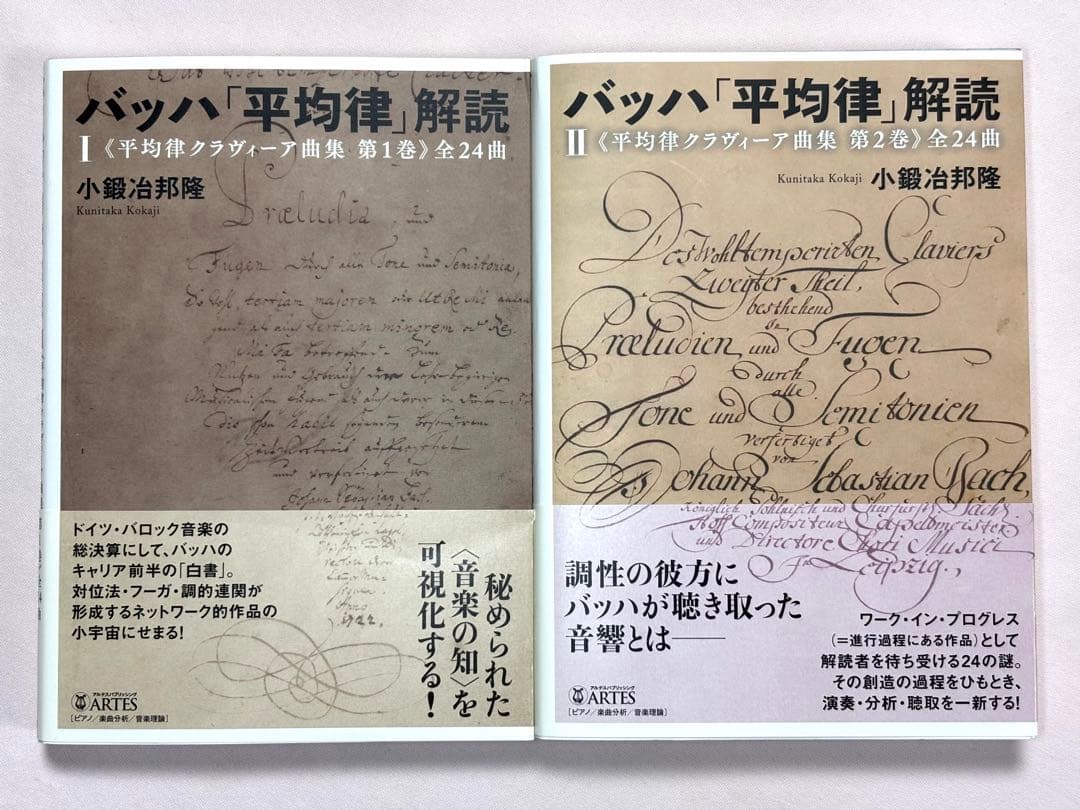 バッハ「平均律」解読
I《平均律クラヴィーア曲集 第1巻》全24曲
小鍛冶邦隆
Kunitaka Kokaji
Præludia, und
Fugen durch alle Tone und Semitonia,
tertiam majorem oder Ut Re Mi
tertiam minorem oder Re
Mi Fa betreffend. Zum
Nutzen und Gebrauch der Lehrbegierigen
Musicalischen
und
Johann Sebastian Bach.
Anno
1722.
ドイツ・バロック音楽の
総決算にして、バッハの
キャリア前半の「白書」。
対位法・フーガ・調的連関が
形成するネットワーク的作品の
小宇宙にせまる!
秘められた
〈音楽の知〉を
可視化する!
アルテスパブリッシング
ARTES
[ピアノ/楽曲分析/音楽理論]
バッハ「平均律」解読
II《平均律クラヴィーア曲集 第2巻》全24曲
Kunitaka Kokaji 小鍛冶邦隆
Des Wohltemperirten Claviers
Zweyter Theil,
besthehend
in
Præludien und Fugen
durch
alle
Tone und Semitonien
verfertiget
von
Johann Sebastian Bach,
Königlich Pohlnisch und Churfürstl. Sächs.
Hoff Compositeur Capellmeister
und Directore Chori Musici
In Leipzig.
調性の彼方に
バッハが聴き取った
音響とは——
ワーク・イン・プログレス
(=進行過程にある作品)として
解読者を待ち受ける24の謎。
その創造の過程をひもとき、
演奏・分析・聴取を一新する!
アルテスパブリッシング
ARTES
[ピアノ/楽曲分析/音楽理論]